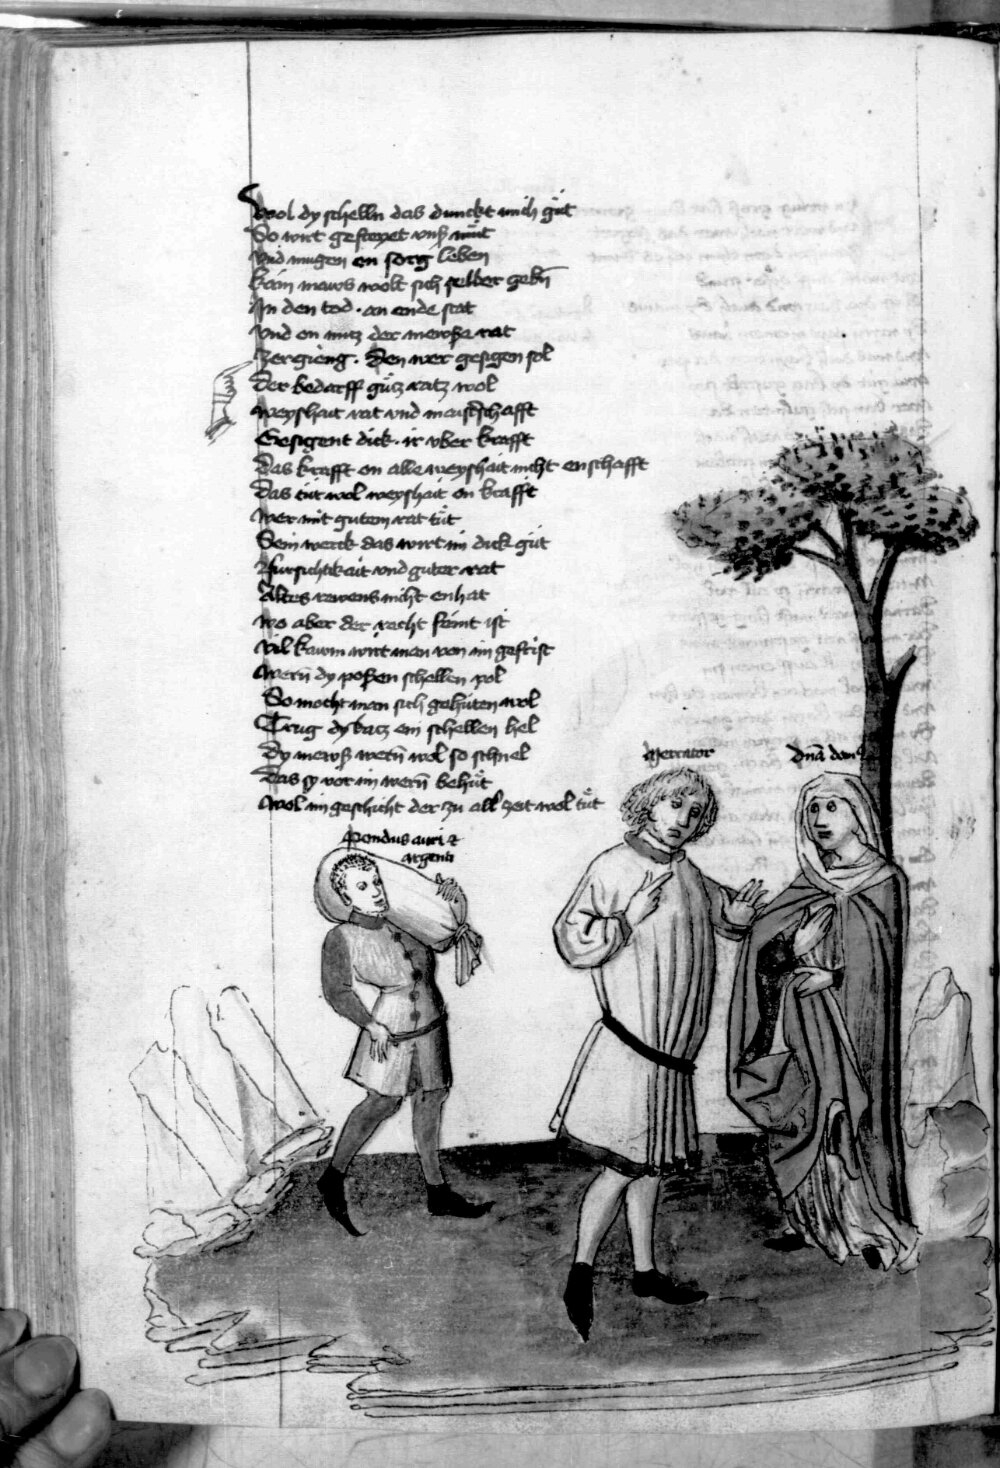 Wol dy schelln das dunckt mich gůt
So wirt gefreyet vnß můt
Vnd mugen on sorg leben
kain maws wolt sich selber gebñ
In den tod · an ende stat
Vnd on nutz der mewße rat
Zergieng · Den wer gesigen sol
Der bedarff gůtz ratz wol
weyshait rat vnd maisterschafft
Gesigent dick · ir vber krafft
Das krafft on alle weyshait nicht enschafft
Das tůt wol weyshait on krafft
wer mit gutem rat tůt
Sein werck das wirt im dick gůt
Fursichtikait vnd guter rat
Altes rewens nicht enhat
wo aber der recht frůnt ist
Vil kawm wirt man von im gefrist
Werñ dy poßen schellen vol
So mocht man sich gehůten wol
Trug dy katz ein schellen hel
Dy mewß werñ wol so schnel
Das sy vor im werñ behůt
Wol im geschicht der zu all zeit wol tůt
Mercator
Dña
Pondus auri &
argenti